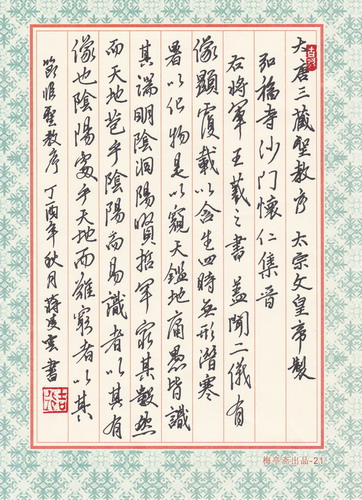 大唐三藏聖教序 太宗文皇帝製
弘福寺沙門懷仁集晉
右將軍王羲之書 蓋聞二儀有
像顯覆載以含生四時無形潛寒
暑以化物是以窺天鑑地庸愚皆識
其端明陰洞陽賢哲罕窮其數然
而天地苞乎陰陽而易識者以其有
像也陰陽處乎天地而難窮者以其
節臨聖教序 丁酉年秋月 書
梅亭斋出品-21